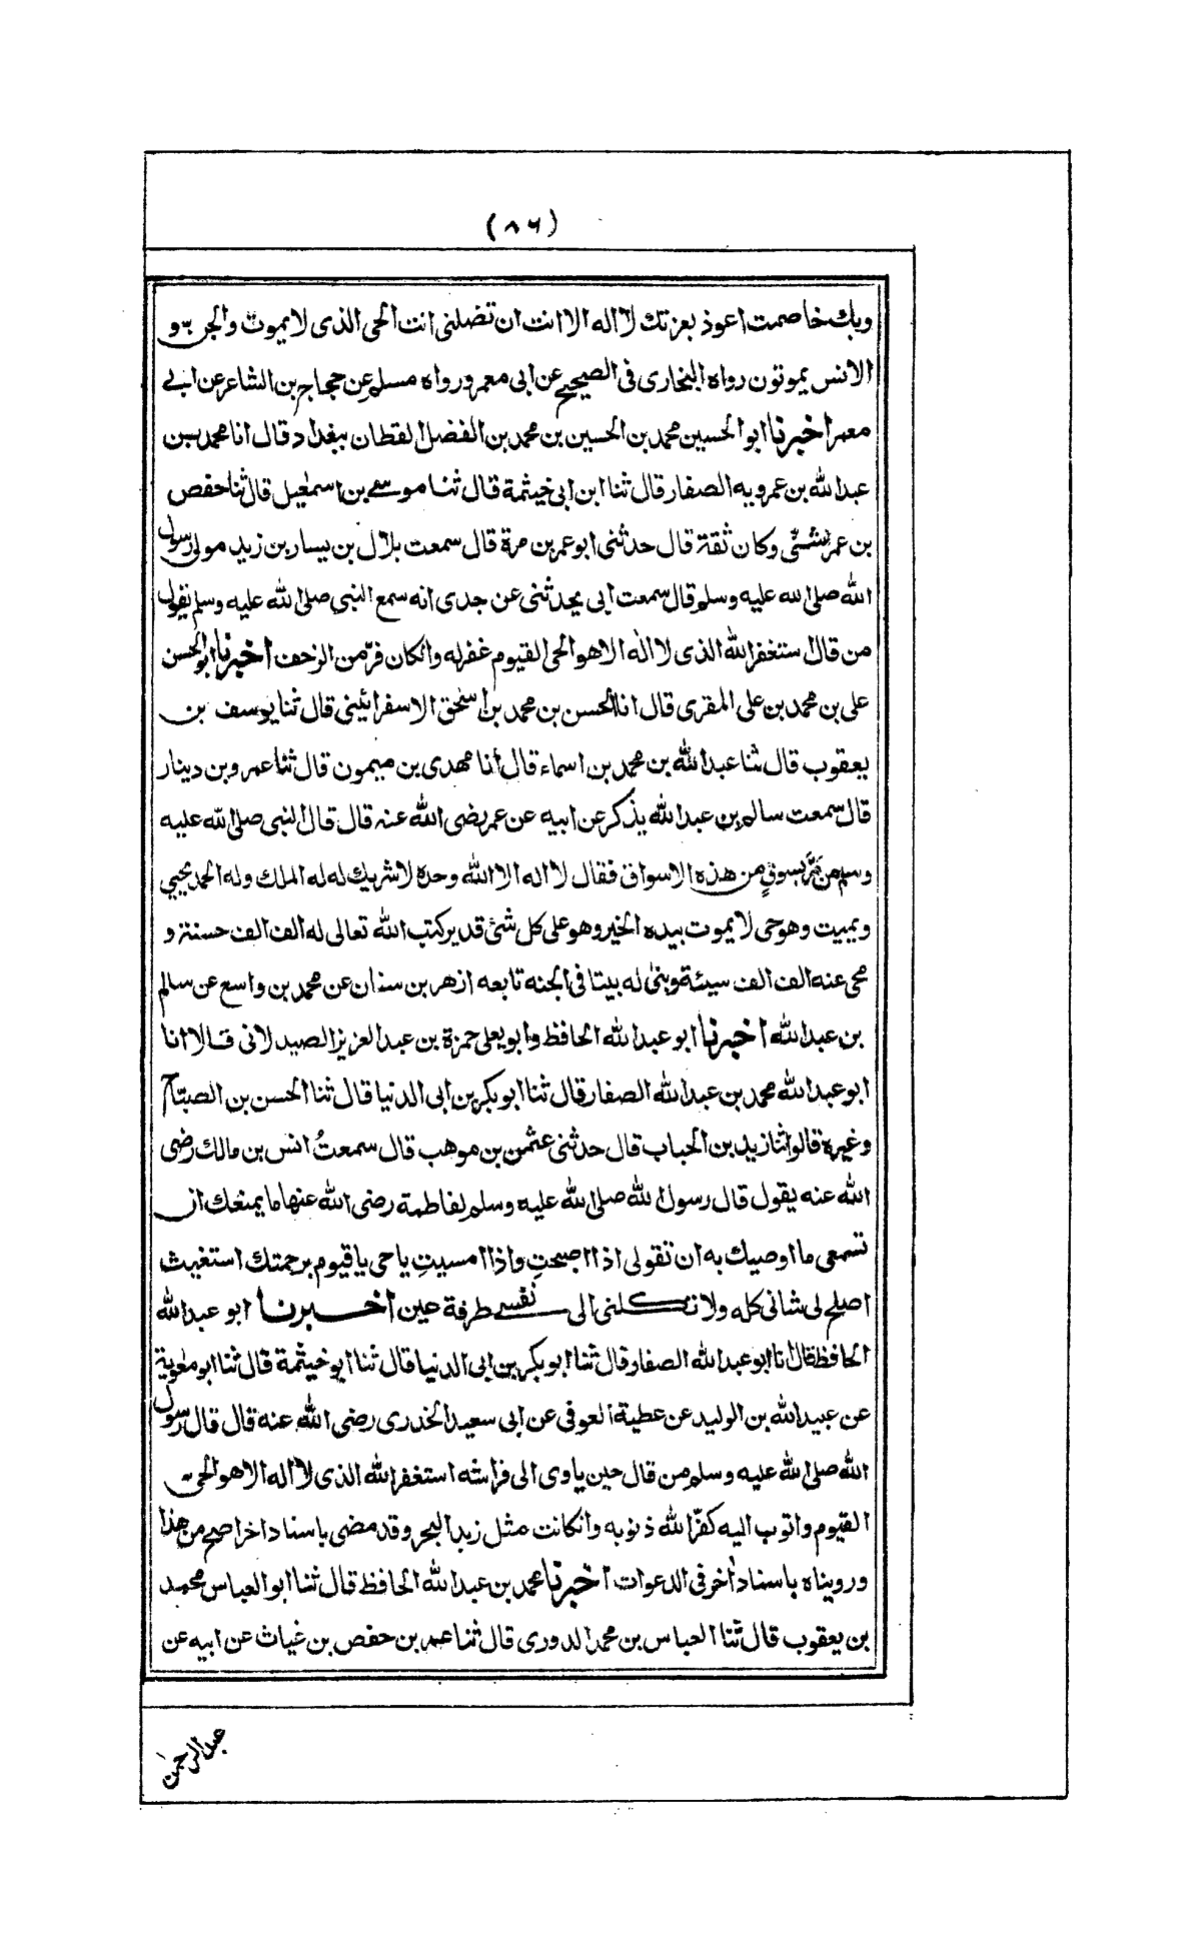 (٨٦)
وبك خاصمت اعوذ بعزتك لا اله الا انت ان تضلنى انت الحى الذى لا يموت والجن و
الانس يموتون رواه البخارى فى الصحيح عن ابى معمر ورواه مسلم عن حجاج بن الشاعر عن ابى
معمر اخبرنا ابو الحسين محمد بن الحسين بن محمد بن الفضل القطان ببغداد قال انا محمد بن
عبد الله بن عمرويه الصفار قال ثنا ابن ابى خيثمة قال ثنا موسى بن اسمعيل قال ثنا حفص
بن عمر الشنّى وكان ثقة قال حدثنى ابو عمر بن مرة قال سمعت بلال بن يسار بن زيد مولى رسول
الله صلى الله عليه وسلم قال سمعت ابى يحدثنى عن جدى انه سمع النبى صلى الله عليه وسلم يقول
من قال استغفر الله الذى لا اله الا هو الحى القيوم غفر له وانكان فرّ من الزحف اخبرنا ابو الحسن
على بن محمد بن على المقرى قال انا الحسن بن محمد بن اسحٰق الاسفرائينى قال ثنا يوسف بن
يعقوب قال ثنا عبد الله بن محمد بن اسماء قال انا مهدى بن ميمون قال ثنا عمرو بن دينار
قال سمعت سالم بن عبد الله يذكر عن ابيه عن عمر رضى الله عنه قال قال النبى صلى الله عليه
وسلم من مَرَّ بسوقٍ من هذه الاسواق فقال لا اله الا الله وحده لا شريك له له الملك وله الحمد يحيى
ويميت وهو حى لا يموت بيده الخير وهو على كل شئ قدير كتب الله تعالى له الف الف حسنة و
محى عنه الف الف سيئة وبنى له بيتا فى الجنه تابعه ازهر بن سنان عن محمد بن واسع عن سالم
بن عبد الله اخبرنا ابو عبد الله الحافظ وابو يعلى حمزة بن عبد العزيز الصيدلانى قالا انا
ابو عبد الله محمد بن عبد الله الصفار قال ثنا ابو بكر بن ابى الدنيا قال ثنا الحسن بن الصبّاح
وغيره قالوا ثنا زيد بن الحباب قال حدثنى عثمٰن بن موهب قال سمعتُ انس بن مالك رضى
الله عنه يقول قال رسول الله صلى الله عليه وسلم لفاطمة رضى الله عنها ما يمنعك ان
تسمعى ما اوصيك به ان تقولى اذا اصبحتِ واذا امسيتِ يا حى يا قيوم برحمتك استغيث
اصلح لى شانى كله ولا تكلنى الى نفسى طرفة عين اخبرنا ابو عبد الله
الحافظ قال انا ابو عبد الله الصفار قال ثنا ابو بكر بن ابى الدنيا قال ثنا ابو خيثمة قال ثنا ابو معٰوية
عن عبيد الله بن الوليد عن عطية العوفى عن ابى سعيد الخدرى رضى الله عنه قال قال رسول
الله صلى الله عليه وسلم من قال حين ياوى الى فراشه استغفر الله الذى لا اله الا هو الحى
القيوم واتوب اليه كفّر الله ذنوبه وانكانت مثل زبد البحر وقد مضى باسناد اخر اصح من هذا
ورويناه باسناد اٰخر فى الدعوات اخبرنا محمد بن عبد الله الحافظ قال ثنا ابو العباس محمد
بن يعقوب قال ثنا العباس بن محمد الدورى قال ثنا عمر بن حفص بن غياث عن ابيه عن
عبد الرحمٰن